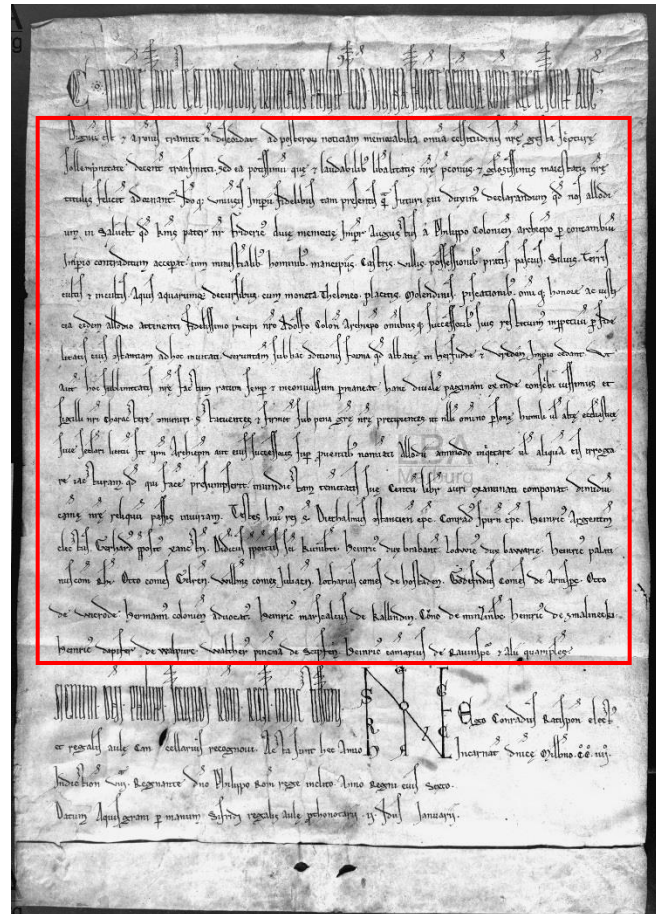 C In nomine sancte et individue trinitatis Philippus secundus divina favente clementia Romanorum rex et semper aug
Dignum est & a ratione tramite n discordat ad posterorum noticiam memorabilia omnia celsitudinis nre gesta scripture
sollempnitate decenti transmitti. sed ea potissimum que & laudabilis libalitatis nre & gloriosissimus maiestatis nre
titulus feliciter adornant. Ido q universis Impii fidelibus tam presentibus q futuris eius duximus declarandum qd nos allodi
um in Salvelt qd kmus pater nr Frideric dive memorie Impr Augustus a Philippo Colonien archiepo p concambiu
Imperio contraditum accepat. cum ministialib hominib mancipiis. Castris. villis possessionib pratis pascuis. Silvis. Terris
cultis & incultis. Aquis aquarumq decursib. cum moneta Theloneo. placitis. Molendinis. piscationib. omi q honore ac iusti
cia eidem allodio attinenti fidelissimo pncipi nro Adolfo Colon Archiepo omnibus q successorib suis restituimus inppetuu p fide
litatis eius constantiam ad hoc invitati. veruntam sub hac conditionis forma qd abbatie in herfurde & vreden Impio cedant. Ut
aut hoc sublimitatis nre factum ratum semp & inconvulsum pmaneat. hanc divale paginam exinde conscribi iussimus et
sigilli nri charactere communiri. statuentes & firmiter sub pena gre nre precipientes ut nlli omnino psone humili ul alte ecclesiastice
sive seclari liceat sepe dcm Archiepm aut eius successores sup pventib nominati allodii ammodo inqietare ul aliqua eis irroga
re iacturam. qd qui face presumpserit. in vindictam temeritatis sue Centu libr auri examinati componat. dimidiu
camere nre reliqua passis iniuriam. Testes huius rei st Diethalmus Constancien epc. Conrad Spirn epc. Heinric Argentin
electus. Gerhard pposit xanctn. Didericus pposit sci kuniberti. heinric dux brabant. Lodwic dux bawarie. heinric palati
nus com Rheni. Otto comes Gelren. willmus comes Iuliacn. Lotharius comes de hostaden. Godefridus Comes de Arnispe. Otto
de wicrode. hermann colonien advocat. heinric marscalcus de kallindin. Cono de minzinbc. heinric de smalnecki.
heinric dapifer de walpurc. walther pncna de Scipfen. heinric camarius de Ravinspc & alii quamples.
Signum domni Philippi secundi Romanorum regis invictissimi
Ego Conradus Ratispon elect
et regalis aule Cancellarius recognovi. Acta sunt hec Anno Incarnat dnice Millmo. CC. iiij.
Indiction viij. Regnante dno Philippo Rom rege inclito. Anno Regni eius Sexto.
Datum Aquisgrani p manum Sifridi regalis aule pthonotarij. ij. Idus Ianuarij.